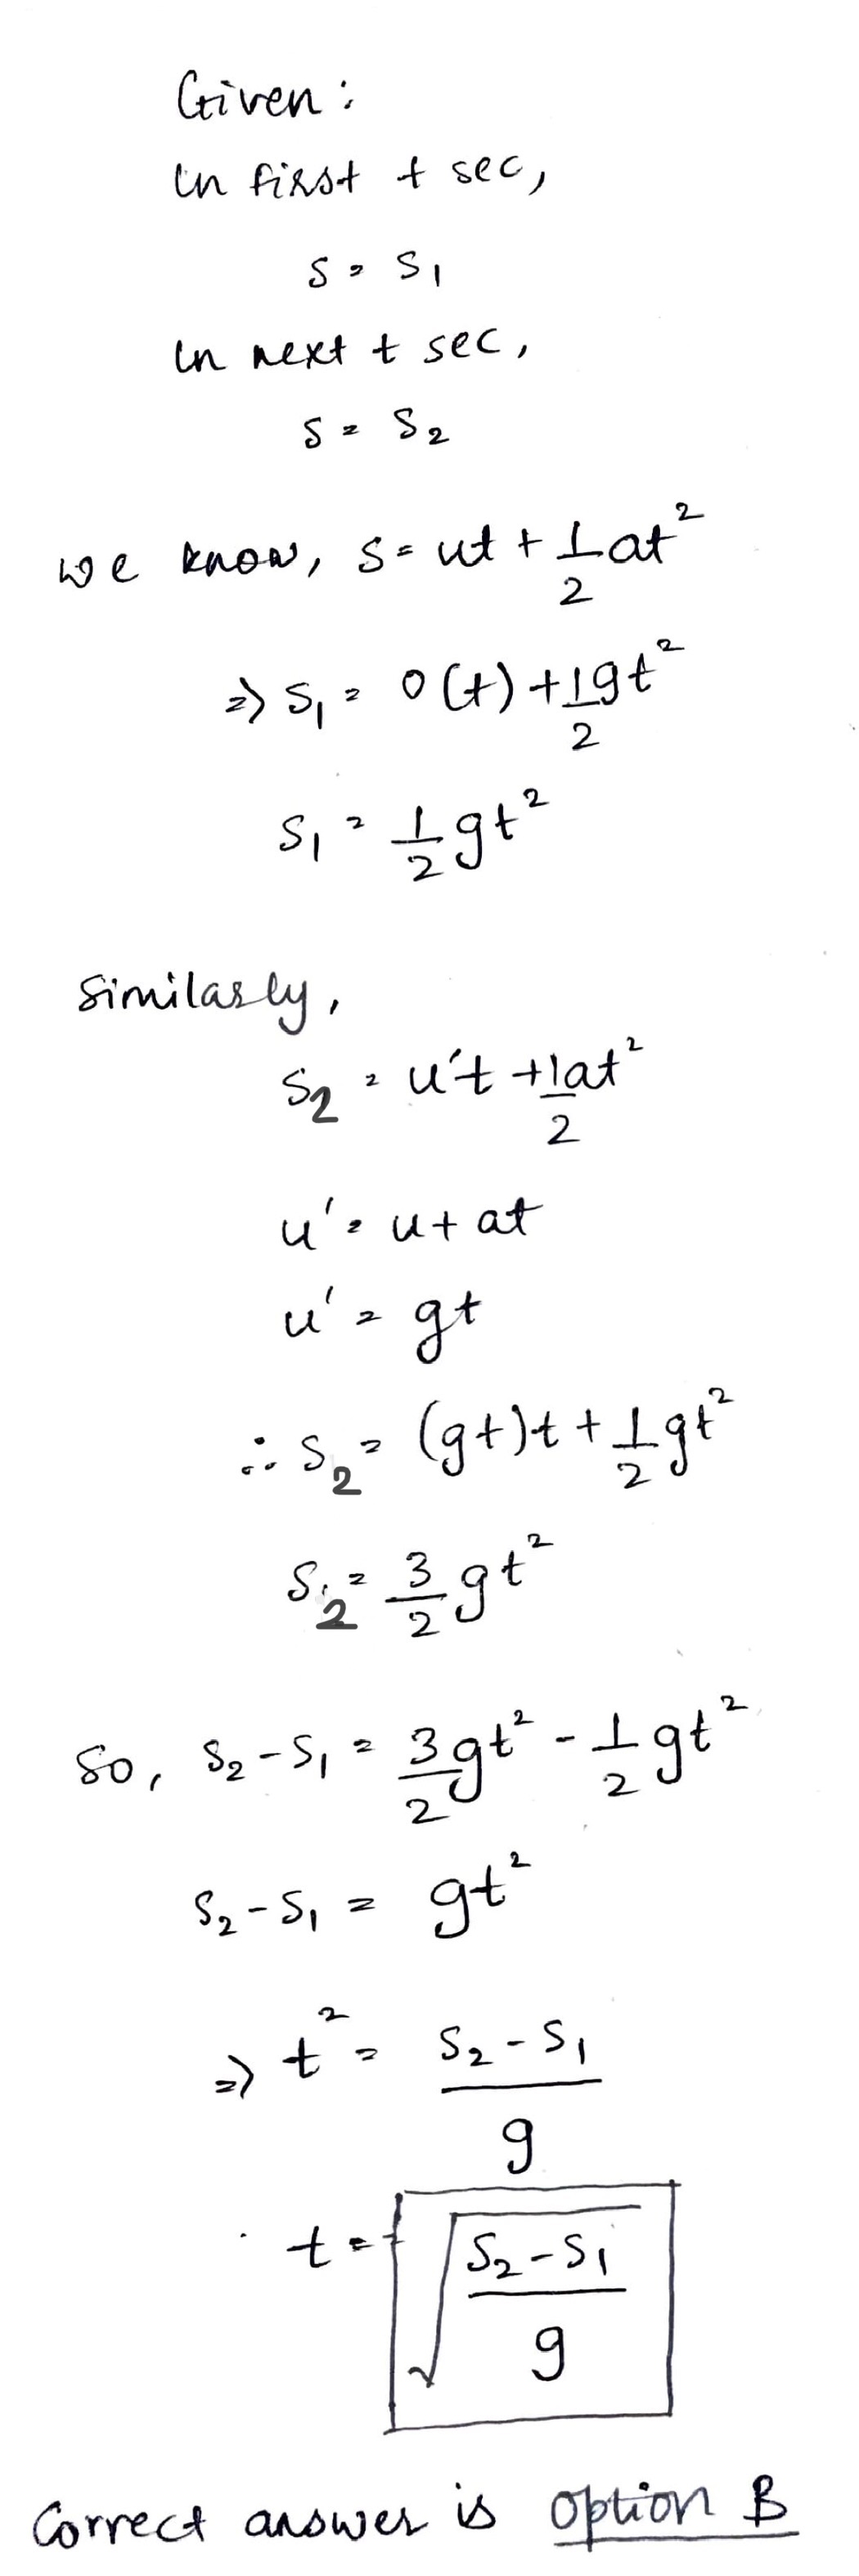 Given:
in first t sec,
s = s₁
in next t sec,
s = s₂
we know, s = ut + 1/2 at²
⇒ s₁ = 0(t) + 1/2 gt²
s₁ = 1/2 gt²
similarly,
s₂ = u't + 1/2 at²
u' = u + at
u' = gt
∴ s₂ = (gt)t + 1/2 gt²
s₂ = 3/2 gt²
so, s₂ - s₁ = 3/2 gt² - 1/2 gt²
s₂ - s₁ = gt²
⇒ t² = (s₂ - s₁)/g
t = √((s₂ - s₁)/g)
Correct answer is option B